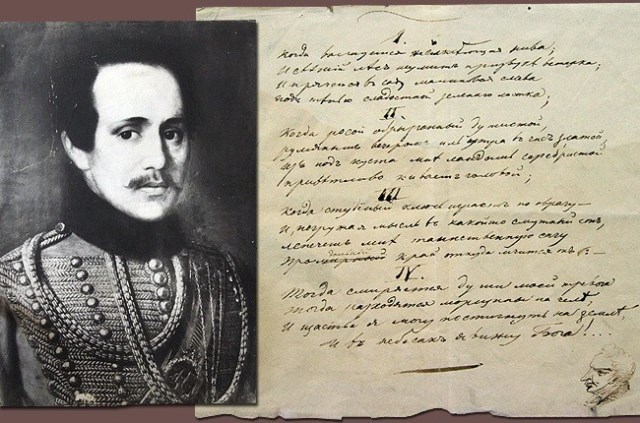 I.
Когда волнуется желтѣющая нива;
И свѣжій лѣсъ шумитъ при звукѣ вѣтерка;
И прячется въ саду малиновая слива
Подъ тѣнью сладостной зеленаго листка;
II
Когда росой обрызганный душистой,
Румянымъ вечеромъ иль утра въ часъ златой,
Изъ подъ куста мнѣ ландышъ серебристой
Привѣтливо киваетъ головой;
III
Когда студеный ключъ играетъ по оврагу—
И, погружая мысль въ какой то смутный сонъ,
Лепечетъ мнѣ таинственную сагу
Про мирный край откуда мчится
IV.
Тогда смиряется души моей тревога
Тогда расходятся морщины на челѣ,
И щастье я могу постигнуть на землѣ,
И въ небесахъ я вижу Бога!...